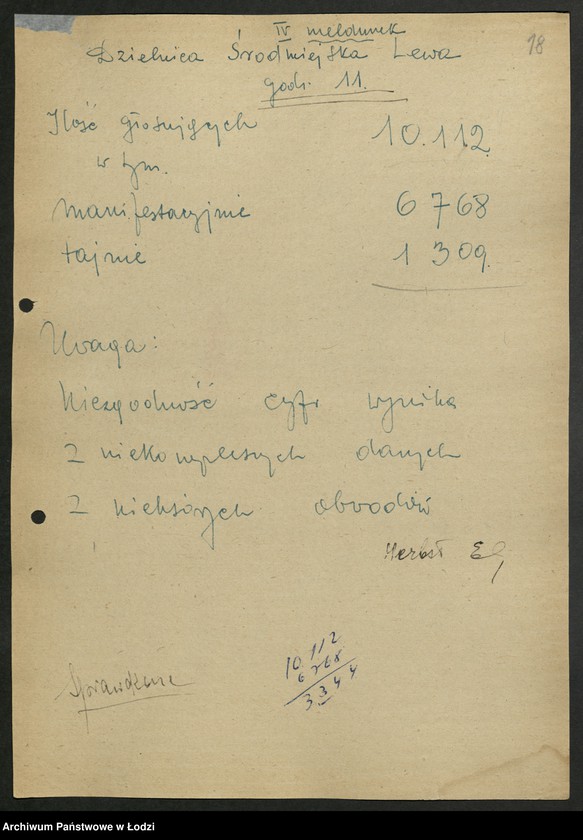 IV meldunek
18
Dzielnica Środmiejska Lewa
godz. 11.
Ilość głosujących 10.112.
w tym.
manifestacyjnie 6 768
tajnie 1 309.
Uwaga:
Niezgodność cyfr wynika
z niekompletnych danych
z niektórych obwodów
Herbst
Sprawdzone
10.112
6 768
3 3 4 4
Archiwum Państwowe w Łodzi